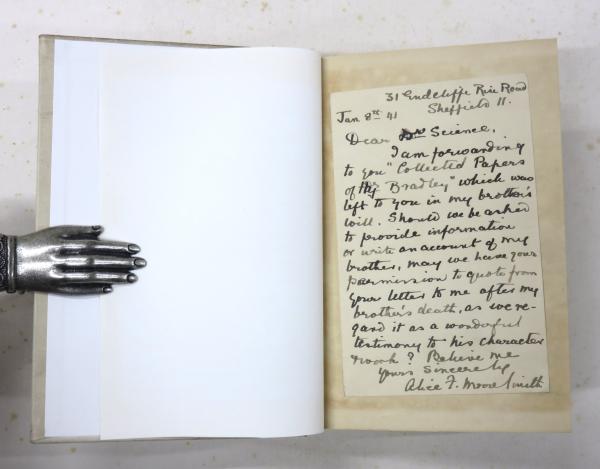 31 Endcliffe Rise Road
Sheffield 11.
Jan 8th 41
Dear Science,
I am forwarding
to you "Collected Papers
of Hy Bradley" which was
left to you in my brother's
will. Should we be asked
to provide information
or write an account of my
brother, may we have your
permission to quote from
your letter to me after my
brother's death, as we re-
gard it as a wonderful
testimony to his character
& work? Believe me
Yours Sincerely
Alice F. Moore Smith